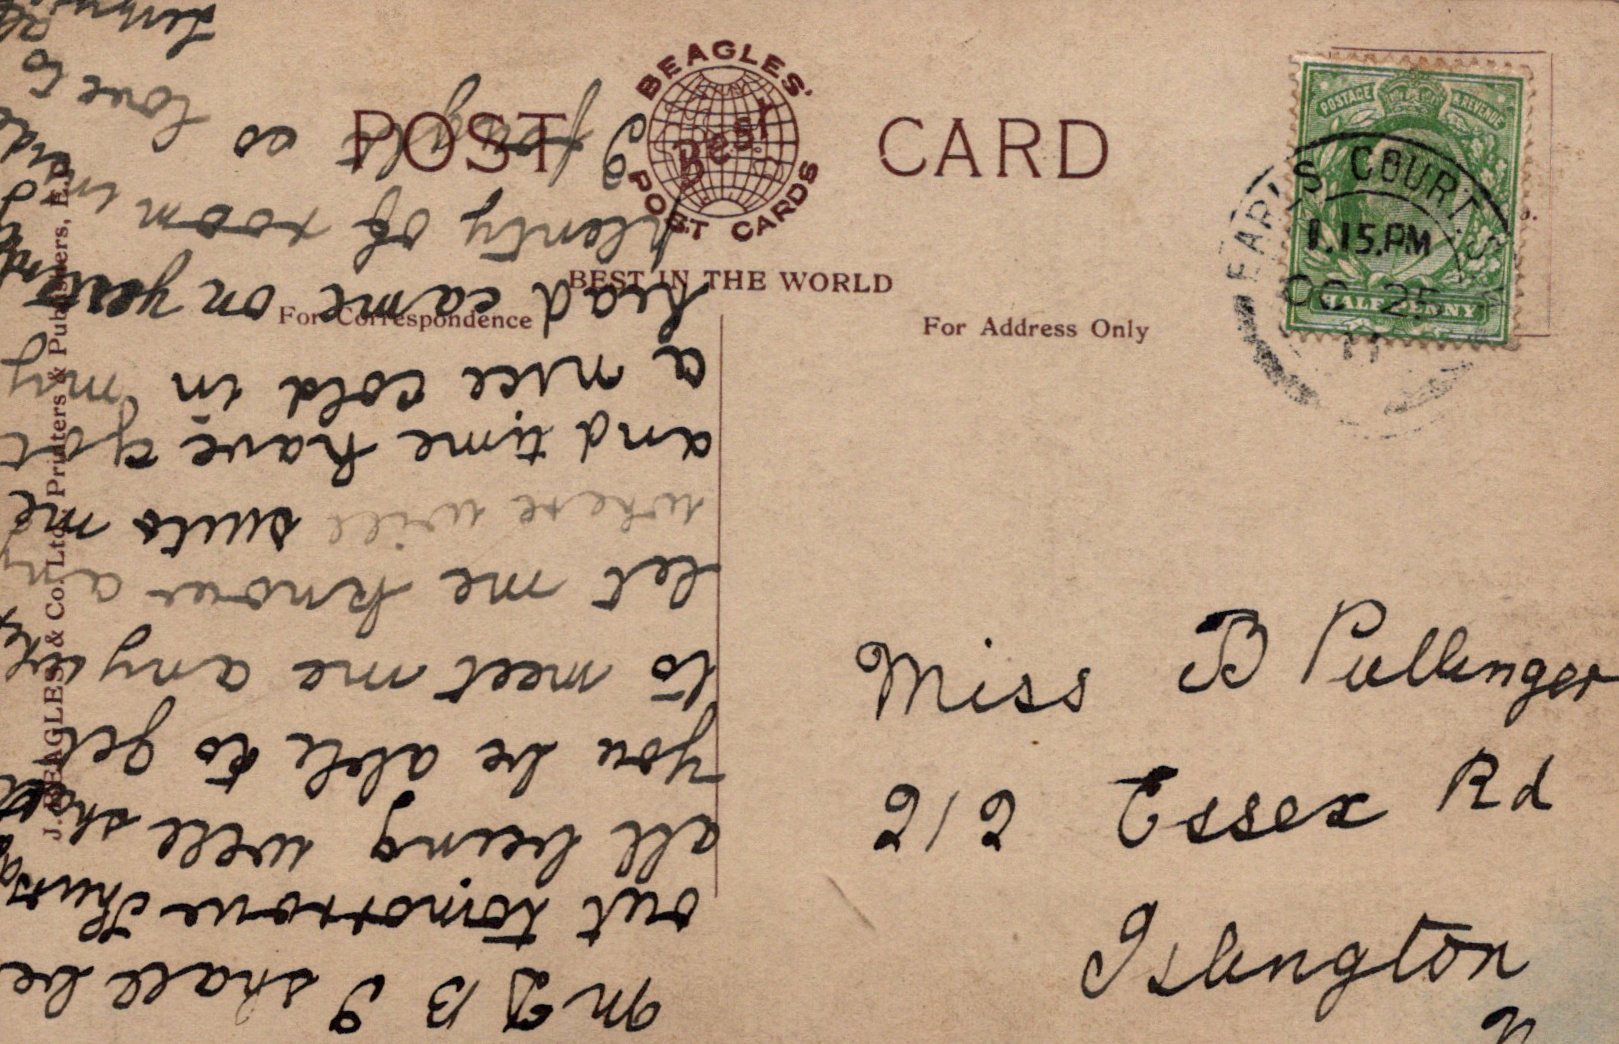 POST CARD
BEAGLES'
Best
POST CARDS
BEST IN THE WORLD
For Correspondence
For Address Only
J. BEAGLES & Co. Ltd. Printers & Publishers, E.C.
POSTAGE & REVENUE
HALFPENNY
EARL'S COURT. S.
1.15.PM
OC 25
11
Miss B Pullinger
212 Essex Rd
Islington
N
M D B I shall be
out tomorrow Thurs
all being well shall
you be able to get
to meet me any
let me know any
where will suits me
and time have got
a nice cold in my
head came on
plenty of room
love to